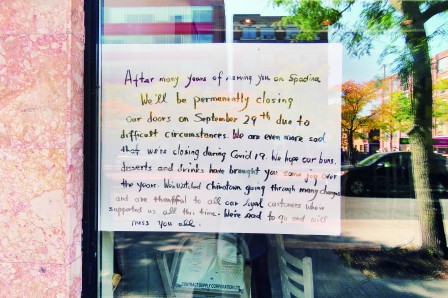 After many years of serving you on Spadina
We'll be permanently closing
our doors on September 29th due to
difficult circumstances. We are even more sad
that we're closing during Covid 19. We hope our buns,
desserts and drinks have brought you some joy over
the years. We watched Chinatown going through many changes
and are thankful to all our loyal customers who've
supported us all this time. We're sad to go and will
miss you all.
CONTRACT SUPPLY CORPORATION